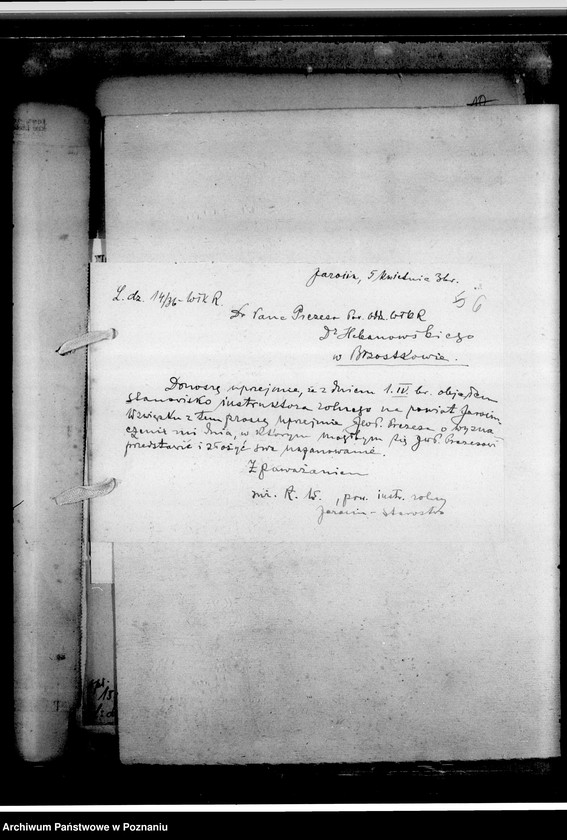 10
Jarocin, 5 kwietnia 36r.
L. dz. 14/36-WTKR
56
Do Pana Prezesa Pow. odz. WTKR
Dr Hebanowskiego
w Brzostkowie.
Donoszę uprzejmie, że z dniem 1.IV. br. objąłem
stanowisko instruktora rolnego na powiat Jarocin
W związku z tem proszę uprzejmie JWP. Prezesa o wyzna-
czenie mi dnia, w którym mógłbym się JWP. Prezesowi
przedstawić i złożyć swe uszanowanie.
Z poważaniem
inż. R. W. , pow. instr. rolny
Jarocin - starostwo
Archiwum Państwowe w Poznaniu